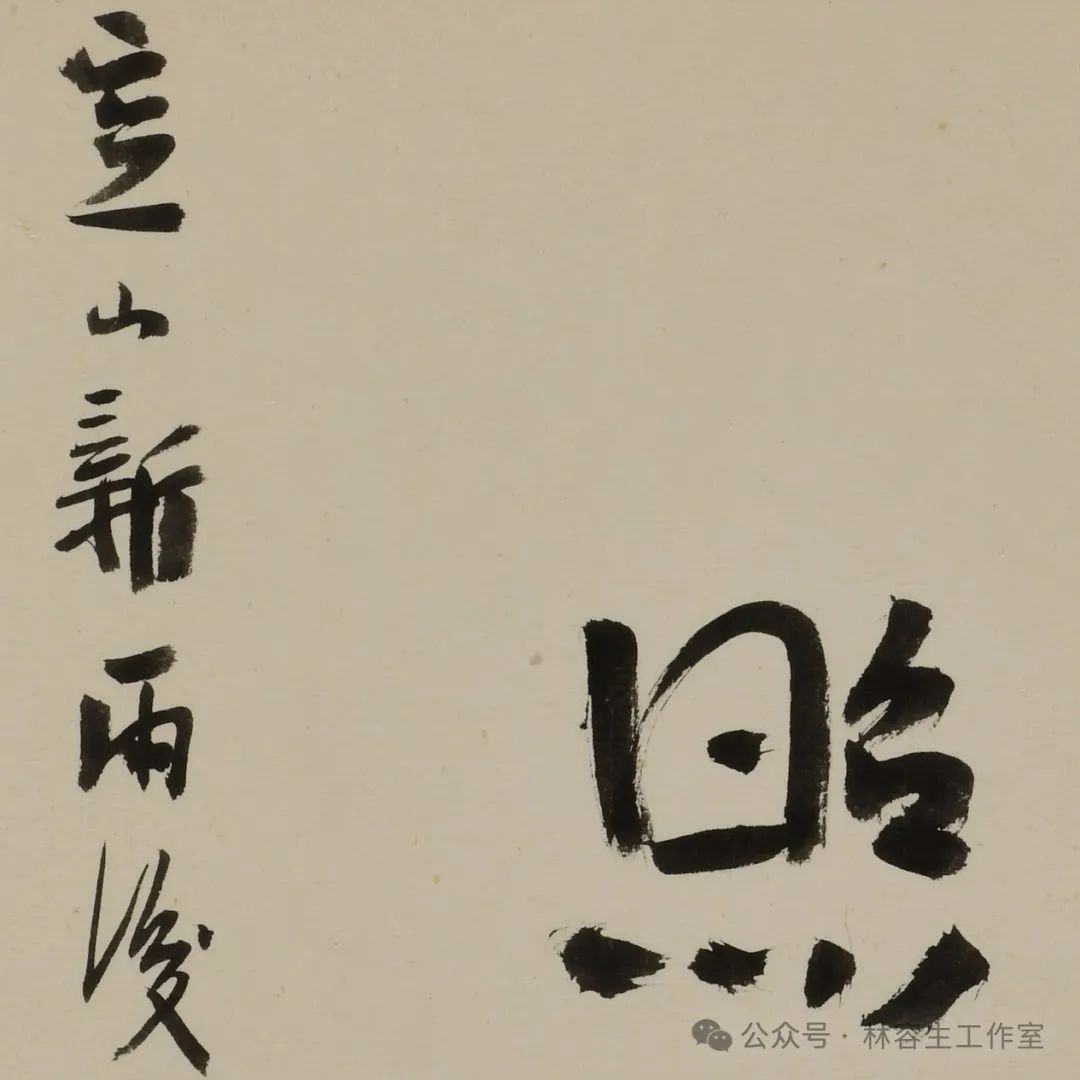 照
空山新雨後
公众号 · 林容生工作室